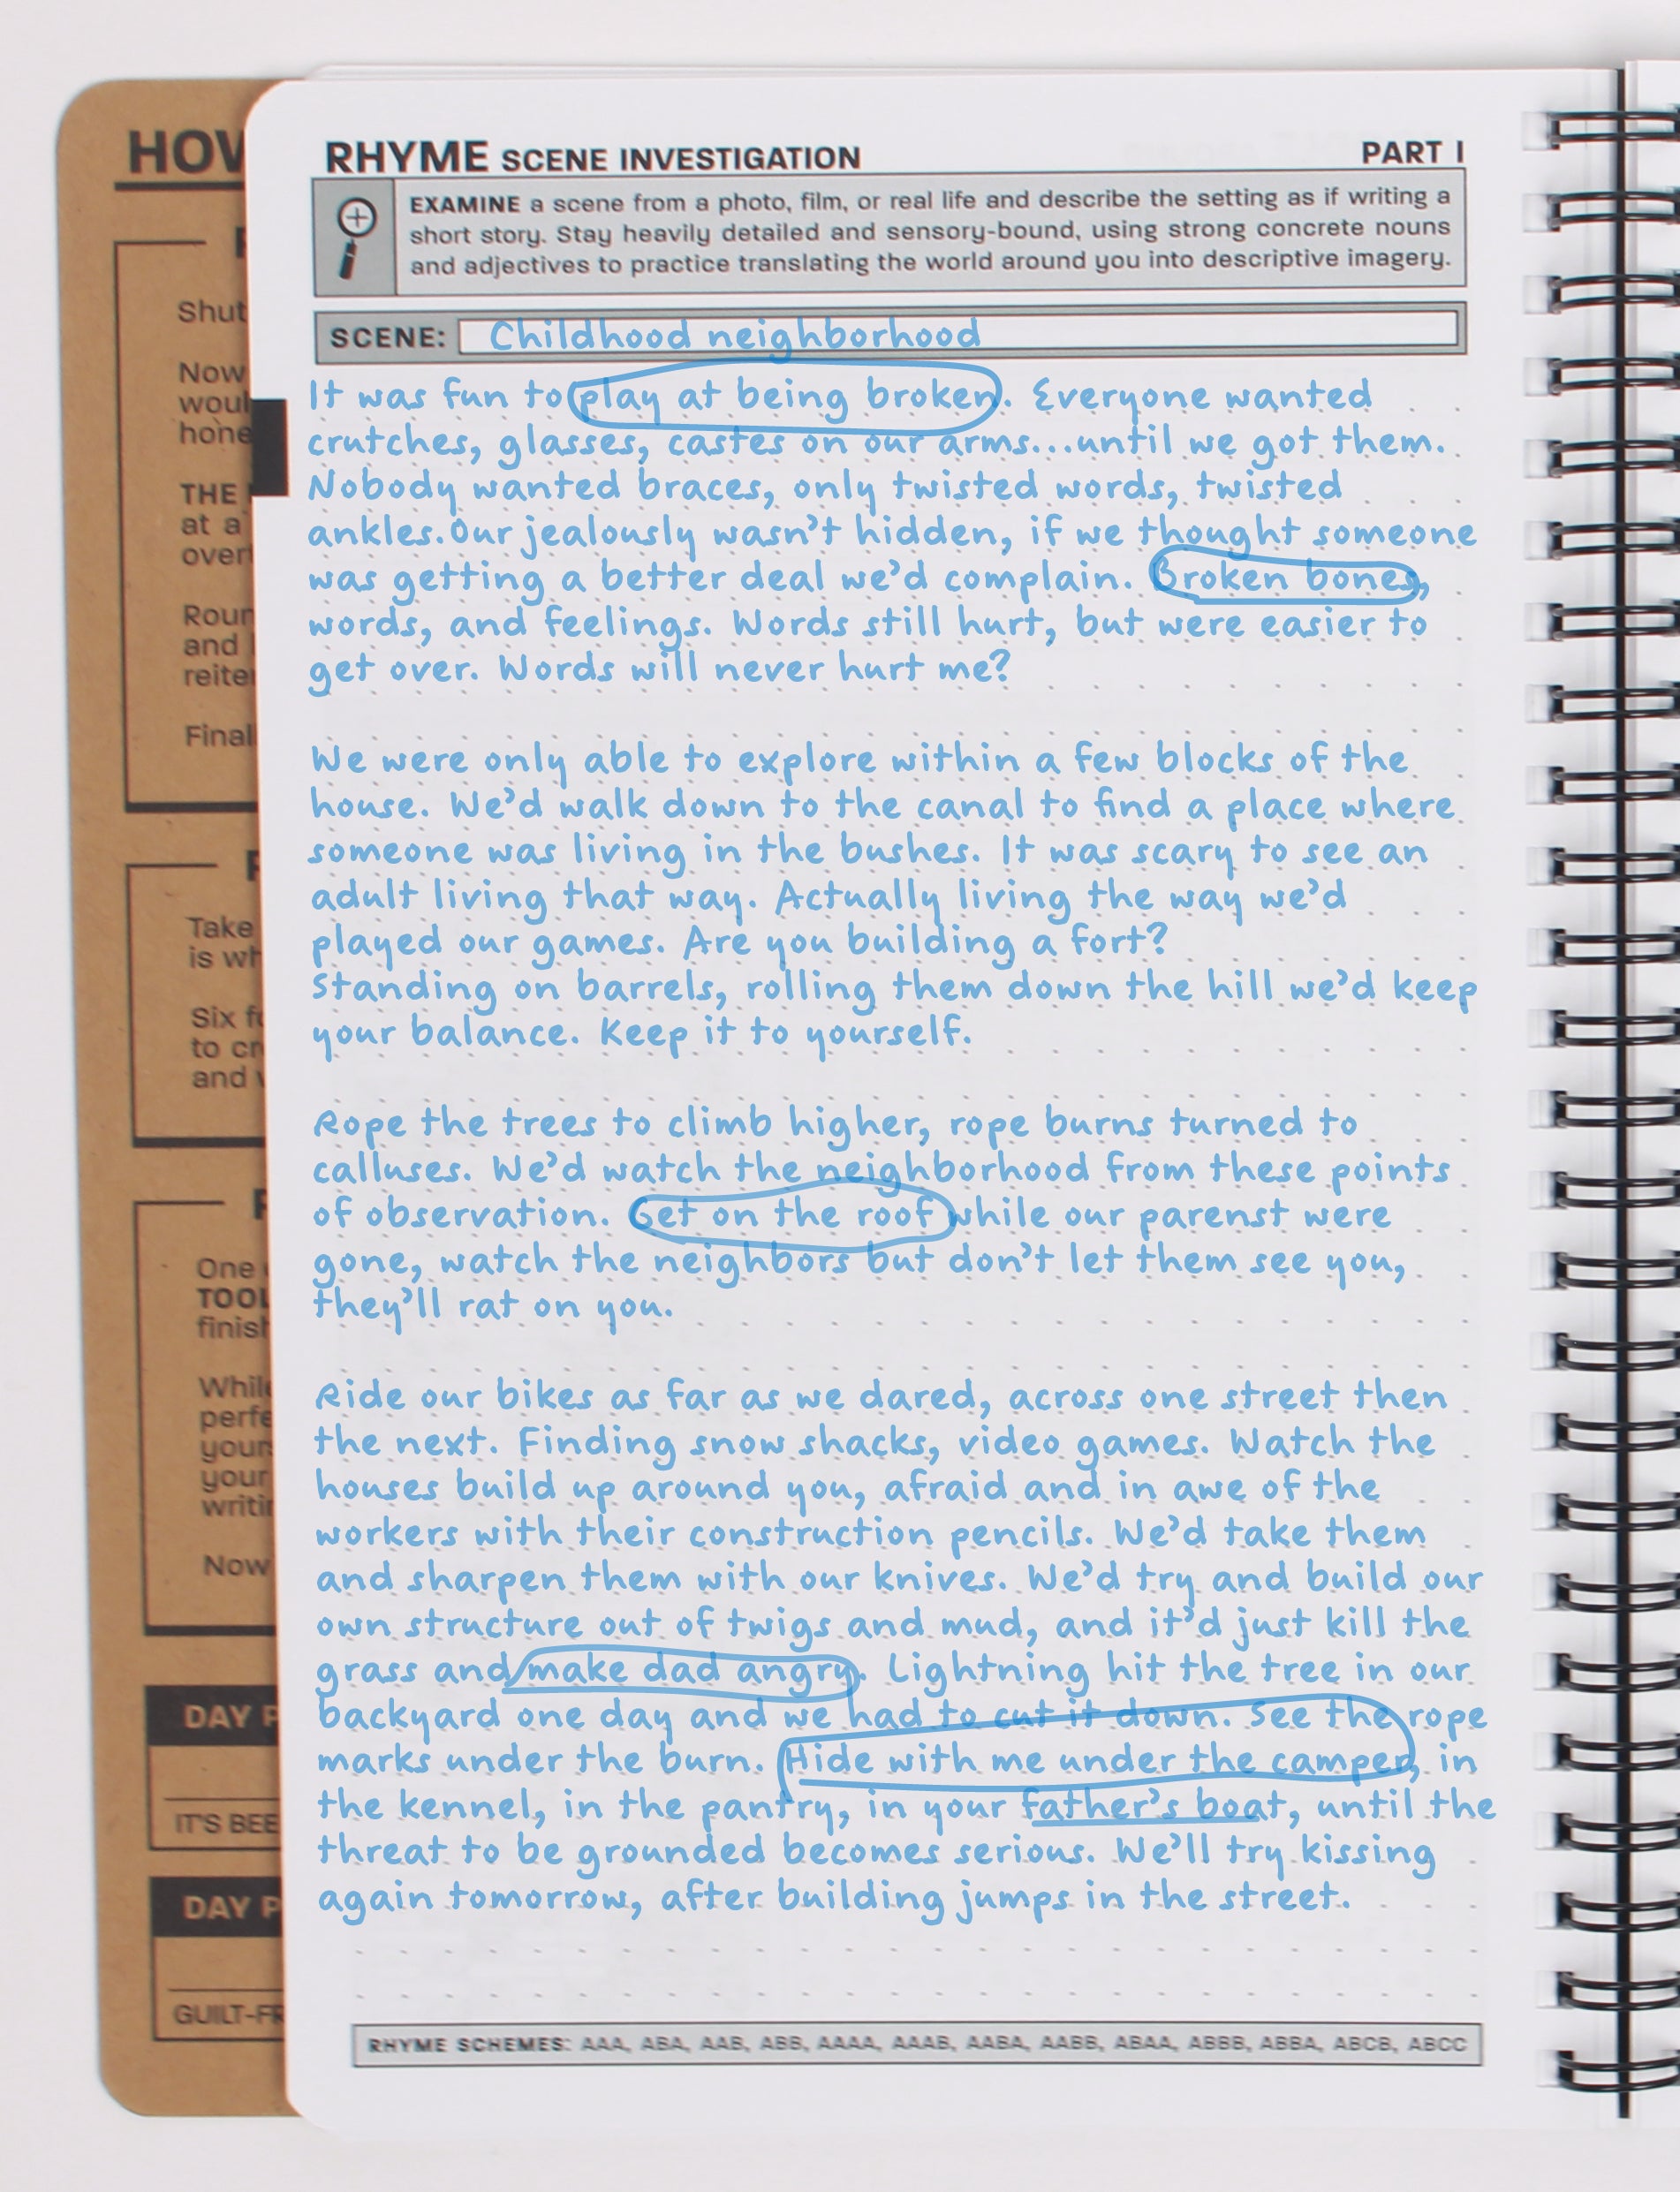 HOW
RHYME SCENE INVESTIGATION
PART I
EXAMINE a scene from a photo, film, or real life and describe the setting as if writing a
short story. Stay heavily detailed and sensory-bound, using strong concrete nouns
and adjectives to practice translating the world around you into descriptive imagery.
SCENE: Childhood neighborhood
It was fun to play at being broken. Everyone wanted
crutches, glasses, castes on our arms...until we got them.
Nobody wanted braces, only twisted words, twisted
ankles. Our jealously wasn't hidden, if we thought someone
was getting a better deal we'd complain. Broken bones,
words, and feelings. Words still hurt, but were easier to
get over. Words will never hurt me?
We were only able to explore within a few blocks of the
house. We'd walk down to the canal to find a place where
someone was living in the bushes. It was scary to see an
adult living that way. Actually living the way we'd
played our games. Are you building a fort?
Standing on barrels, rolling them down the hill we'd keep
your balance. Keep it to yourself.
Rope the trees to climb higher, rope burns turned to
calluses. We'd watch the neighborhood from these points
of observation. Get on the roof while our parenst were
gone, watch the neighbors but don't let them see you,
they'll rat on you.
Ride our bikes as far as we dared, across one street then
the next. Finding snow shacks, video games. Watch the
houses build up around you, afraid and in awe of the
workers with their construction pencils. We'd take them
and sharpen them with our knives. We'd try and build our
own structure out of twigs and mud, and it'd just kill the
grass and make dad angry. Lightning hit the tree in our
backyard one day and we had to cut it down. See the rope
marks under the burn. Hide with me under the camper, in
the kennel, in the pantry, in your father's boat, until the
threat to be grounded becomes serious. We'll try kissing
again tomorrow, after building jumps in the street.
RHYME SCHEMES: AAA, ABA, AAB, ABB, AAAA, AAAB, AABA, AABB, ABAA, ABBB, ABBA, ABCB, ABCC
Shut
Now
woul
hone
THE
at a
over
Roun
and
reite
Final
Take
is wh
Six fo
to cr
and
One
TOOL
finish
While
perfe
your
your
writin
Now
DAY
IT'S BEE
DAY
GUILT-FR